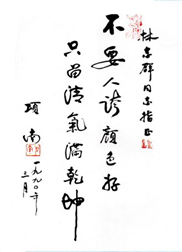 林尔群同志指正
不要人誇顏色好
只留清氣滿乾坤
項南
一九九〇年
三月